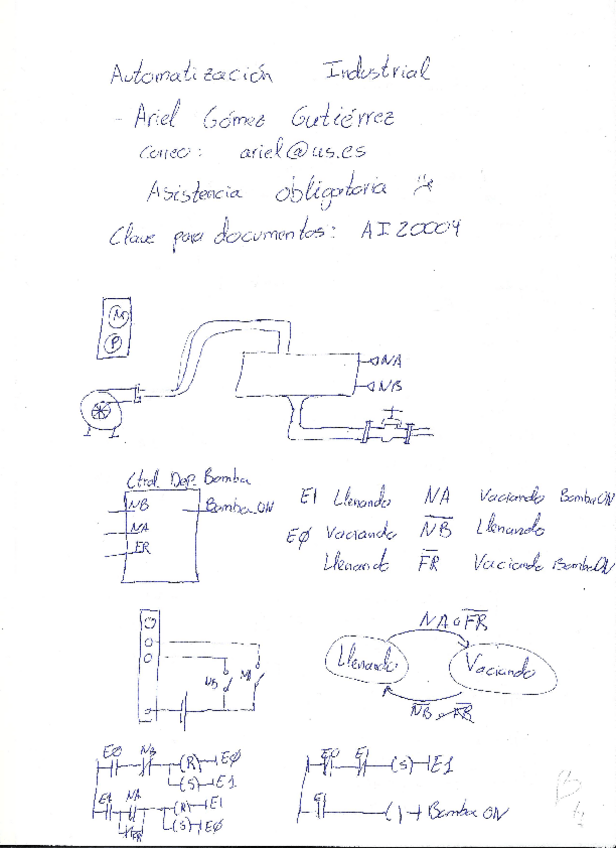 Automatización Industrial
- Ariel Gómez Gutiérrez
correo: ariel@us.es
Asistencia obligatoria
Clave para documentos: AI20004
M
P
NA
NB
Ctrol. Dep. Bomba
NB Bomba_ON
NA
FR
E1 Llenando NA Vaciando Bomba ON
EØ Vaciando N̅B̅ Llenando
Llenando F̅R̅ Vaciando Bomba ON
NA o F̅R̅
Llenando Vaciando
N̅B̅
NB
EØ NB (R) EØ
(S) E1
E1 NA (R) E1
FR (S) EØ
EØ E1 (S) E1
E1 ( ) Bomba ON